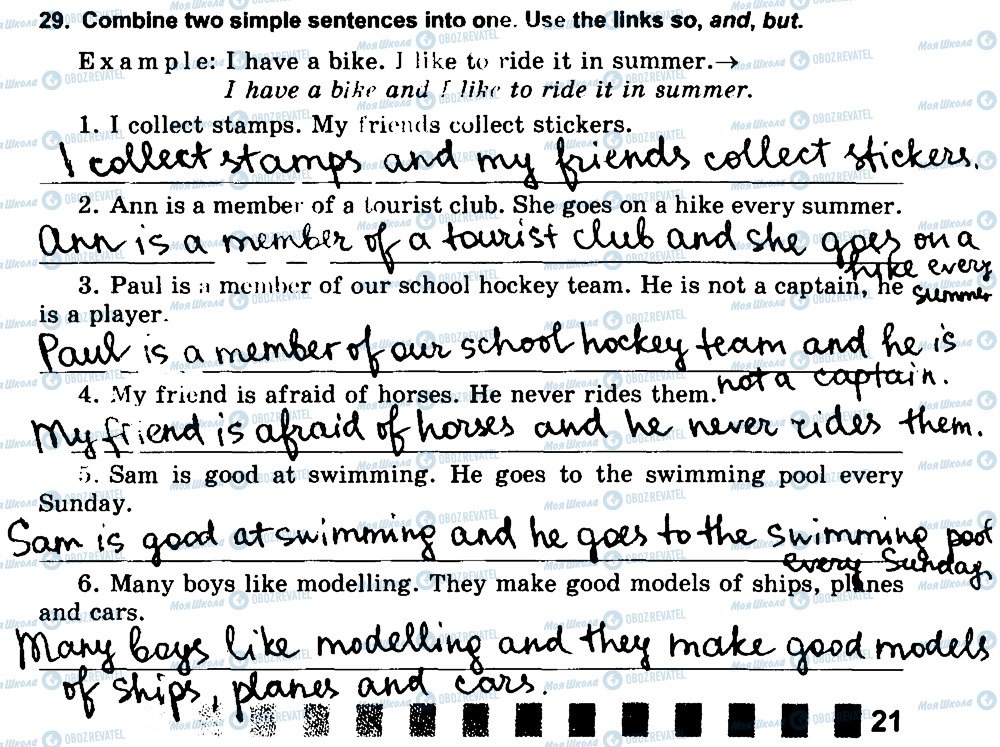 29. Combine two simple sentences into one. Use the links so, and, but.
Example: I have a bike. I like to ride it in summer.→
I have a bike and I like to ride it in summer.
1. I collect stamps. My friends collect stickers.
I collect stamps and my friends collect stickers.
2. Ann is a member of a tourist club. She goes on a hike every summer.
Ann is a member of a tourist club and she goes on a
hike every
summer
3. Paul is a member of our school hockey team. He is not a captain, he
is a player.
Paul is a member of our school hockey team and he is
not a captain.
4. My friend is afraid of horses. He never rides them.
My friend is afraid of horses and he never rides them.
5. Sam is good at swimming. He goes to the swimming pool every
Sunday.
Sam is good at swimming and he goes to the swimming pool
every Sunday
6. Many boys like modelling. They make good models of ships, planes
and cars.
Many boys like modelling and they make good models
of ships, planes and cars.
21
Моя Школа OBOZREVATEL